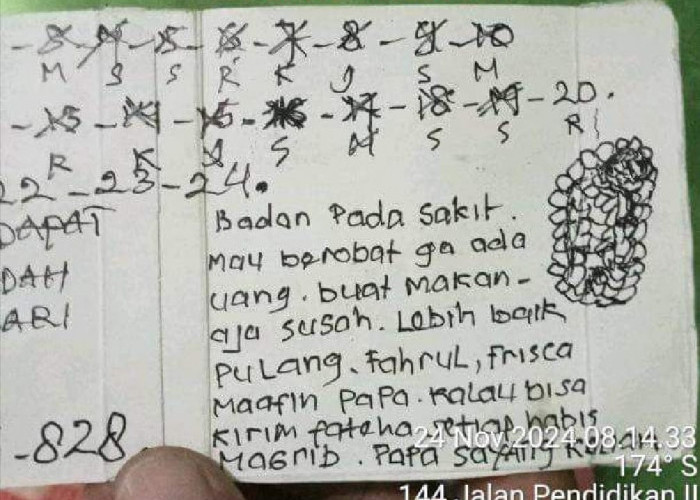 M S S R K J S M
20.
R K J S M S S R
22 - 23 - 24.
DAPAT
DAH
ARI
Badan Pada Sakit.
Mau berobat ga ada
uang. buat Makan-
aja susah. Lebih baik
PuLang. Fahrul, Frisca
Maafin PaPa. Kalau bisa
Kirim fateha setiap habis
MagRIb. PaPa Sayang
-828
24 Nov 2024 08.14.33
174° S
144 Jalan Pendidikan